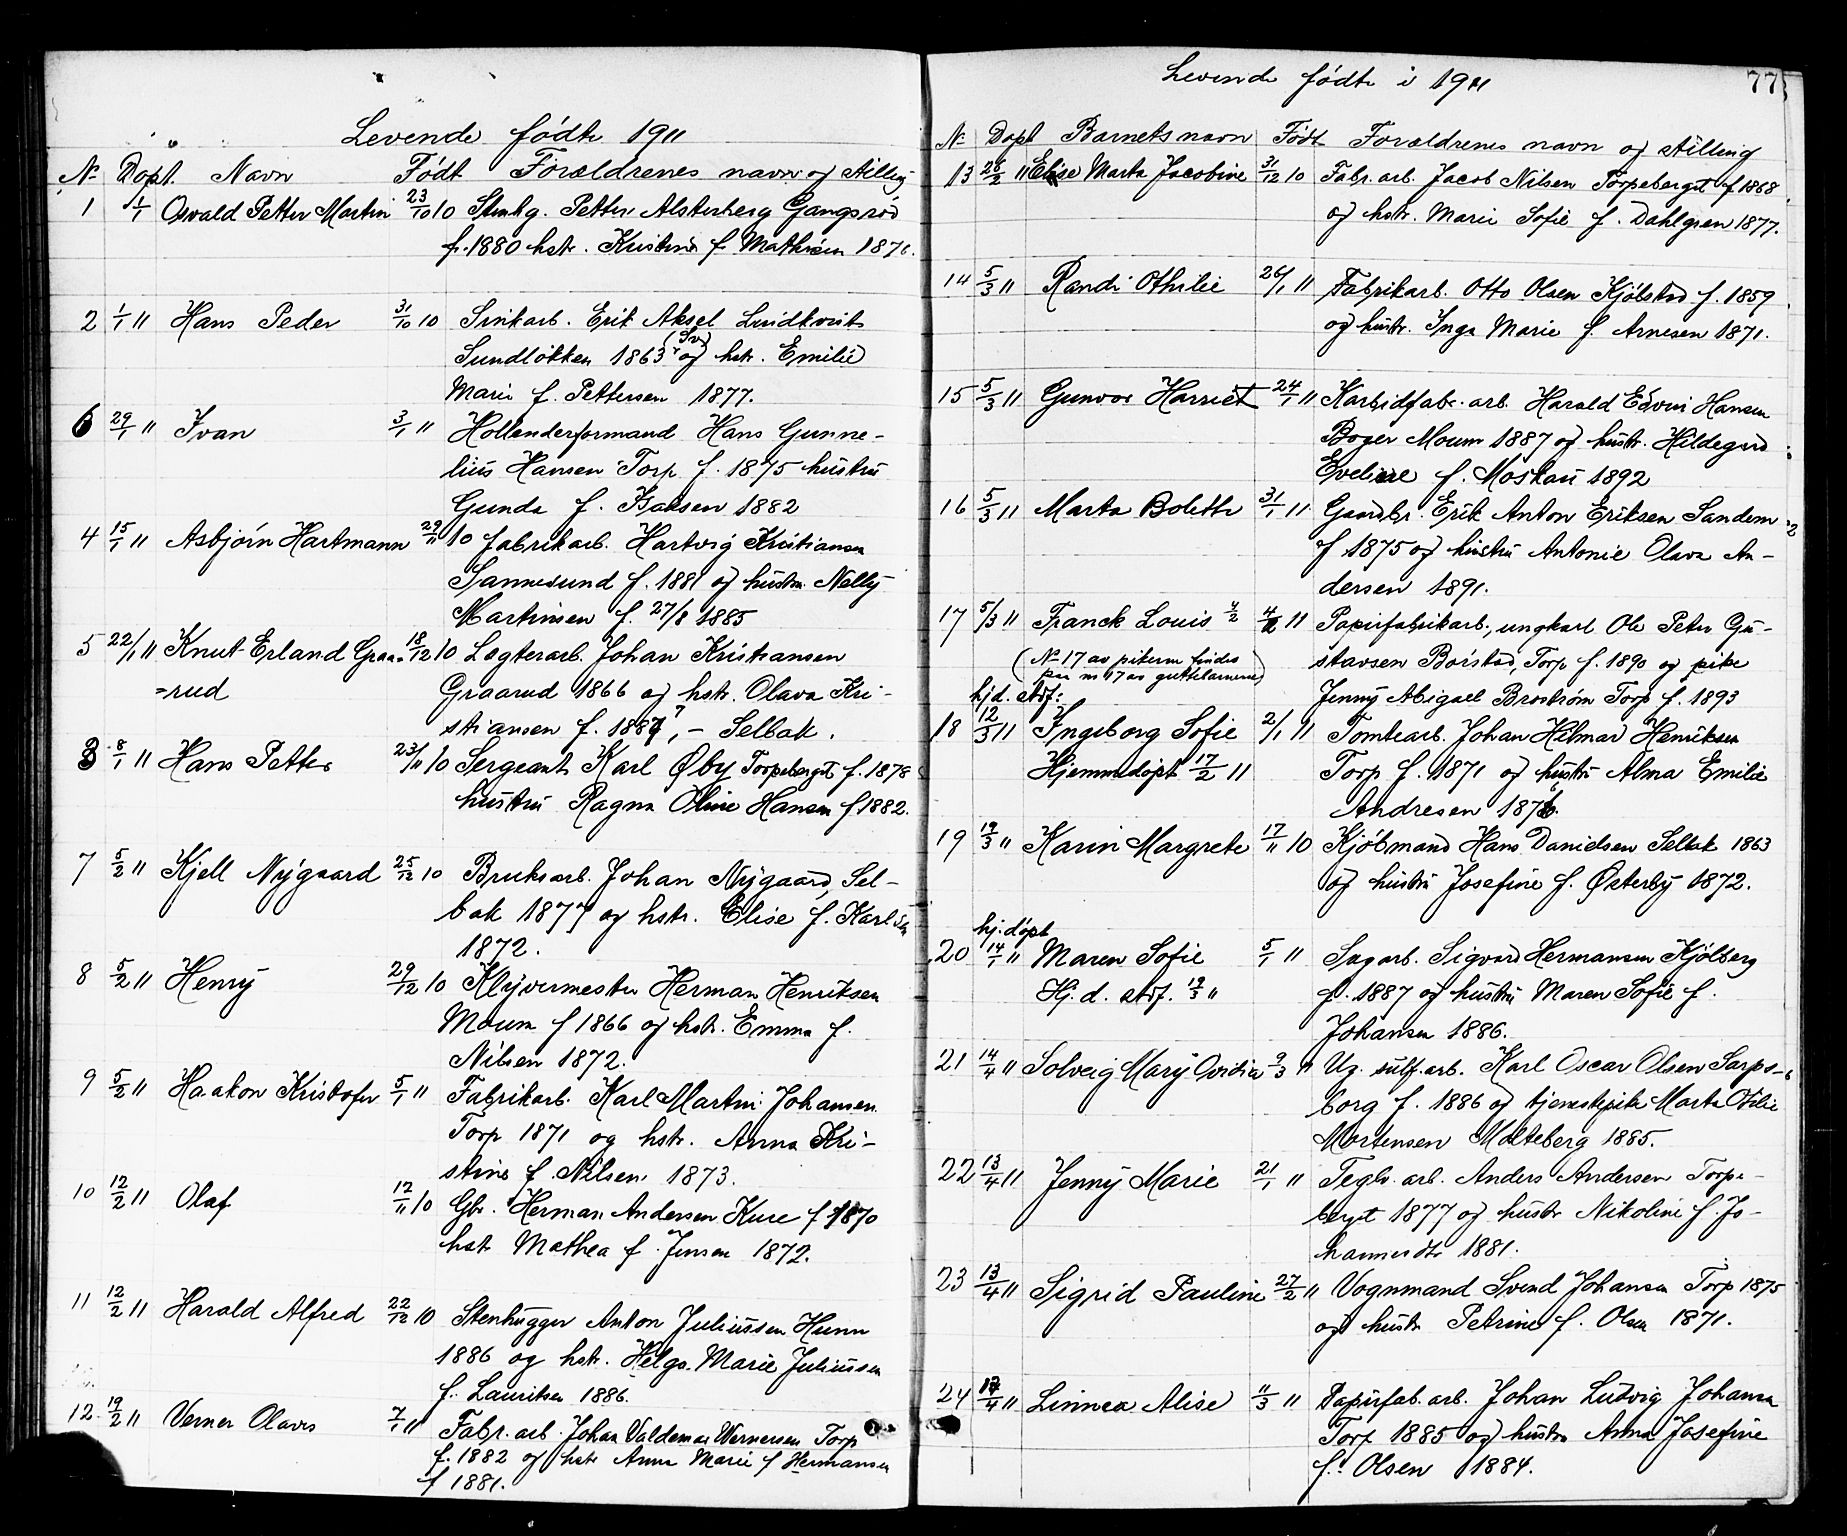 Levende fødte 1911
No Døpt. Navn Født Forældrenes navn og stilling
1 1/1 Osvald Petter Martin 23/10 10 Stenhg. Petter Alsterberg Gangsrød
f. 1880 hstr. Kristine f. Mathisen 1876.
2 1/1 11 Hans Peder 31/10 10 Sinkarb. Erik Aksel Lindkvist
Sundløkken 1863 (Sv) og hstr. Emilie
Marie f. Pettersen 1877.
6 29/1 11 Ivan 3/1 11 Hollenderformand Hans Gunne-
lius Hansen Torp f. 1875 hustru
Gunda f. Isaksen 1882
4 15/1 11 Asbjørn Hartmann 29/11 10 fabrikarb. Hartvig Kristiansen
Sannesund f. 1881 og hustru Nelly
Martinsen f. 27/8 1885
5 22/1 11 Knut Erland Graa- 18/12 10 Lagterarb. Johan Kristiansen
=rud Graarud 1866 og hstr. Olava Kri-
stiansen f. 1887, - Selbak.
3 8/1 11 Hans Petter 23/11 10 Sergeant Karl Øby Torpeberget f. 1878
hustru Ragna Oline Hansen f 1882.
7 5/2 11 Kjell Nygaard 25/12 10 Bruksarb. Johan Nygaard, Sel-
bak 1877 og hstr. Elise f. Karlsen
1872.
8 5/2 11 Henry 29/12 10 Klyvermester Herman Henriksen
Moum f 1866 og hstr. Emma f.
Nilsen 1872.
9 5/2 11 Haakon Kristofer 5/1 11 Fabrikarb. Karl Martin Johansen
Torp 1871 og hstr. Anna Kri-
stine f. Nilsen 1873.
10 12/2 11 Olaf 17/11 10 Gbr. Herman Andersen Kure f 1870
hstr Mathea f. Jensen 1872.
11 12/2 11 Harald Alfred 22/12 10 Stenhugger Anton Juliussen Hunn
1886 og hstr. Helga Marie Juliussen
f. Lauritsen 1886.
12. 19/2 11 Verner Olavs 7/1 11 Fabr. arb. Johan Valdemar Wernersen Torp
f. 1882 og hstr Anna Marie f Hermansen
f 1881.
Levende fødte i 1911 77
No Døpt Barnets navn Født Forældrenes navn og stilling
13 26/2 11 Elise Marta Jacobine 31/12 10 Fabr. arb. Jacob Nilsen Torpeberget f 1868
og hstr. Marie Sofie f. Dahlgren 1877.
14 5/3 11 Randi Othilie 26/1 11 Fabrikarb. Otto Olsen Kjølstad f. 1859
og hustr. Inga Marie f. Arnesen 1871.
15 5/3 11 Gunvor Harriet 24/1 11 Karbidfabr. arb. Harald Edvin Hansen
Boger Moum 1887 og hustr. Hildegard
Eveline f. Moskau 1892
16 5/3 11 Marta Bolette 31/1 11 Gaardbr. Erik Anton Eriksen Sandem
f 1875 og hustru Antonie Olava An-
dersen 1891.
17 5/3 11 Franck Louis 4/2 11 Papirfabrikarb., ungkarl Ole Peter Gu-
(No 17 av pikerne findes stavsen Borstad, Torp f. 1890 og pike
paa no 17 av guttelarnerne) Jenny Abigael Broström Torp f. 1893
hjd. stdf:
18 12/3 11 Ingeborg Sofie 2/1 11 Tomtearb. Johan Hilmar Henriksen
Hjemmedøpt 17/2 11 Torp f. 1871 og hustru Alma Emilie
Andresen 1876.
19 19/3 11 Karin Margrete 17/11 10 Kjøbmand Hans Danielsen Selbak 1863
og hustru Josefine f. Østerby 1872.
hj. døpt
20 14/1 11 Maren Sofie 5/1 11 Sagarb. Sigvard Hermansen Kjølberg
Hj. d. stdf. 19/3 11 f. 1887 og hustru Maren Sofie f.
Johansen 1886.
21 14/4 11 Solveig Mary Ovidia 9/3 11 Ug. sulf. arb. Karl Oscar Olsen Sarps-
borg f. 1886 og tjenestepike Marta Otilie
Mortensen Molteberg 1885.
22 13/4 11 Jenny Marie 21/1 11 Teglv. arb. Anders Andersen Torpe-
berget 1877 og hustr Nikoline f. Jo-
hannesdtr 1881.
23 13/4 11 Sigrid Pauline 27/2 11 Vognmand Svend Johansen Torp 1875
og hustr Petrine f. Olsen 1871.
24 17/4 11 Linnea Alise 11/3 11 Papirfab. arb. Johan Ludvig Johansen
Torp 1885 og hustru Anna Josefine
f. Olsen 1884.